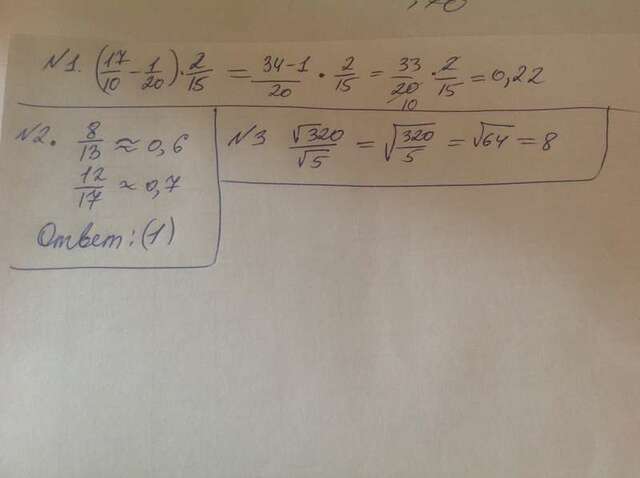 N1. (17/10 - 1/20) · 2/15 = 34-1/20 · 2/15 = 33/20 10 · 2/15 = 0,22
N2. 8/13 ≈ 0,6
12/17 ≈ 0,7
Ответ: (1)
N3 √320/√5 = √320/5 = √64 = 8